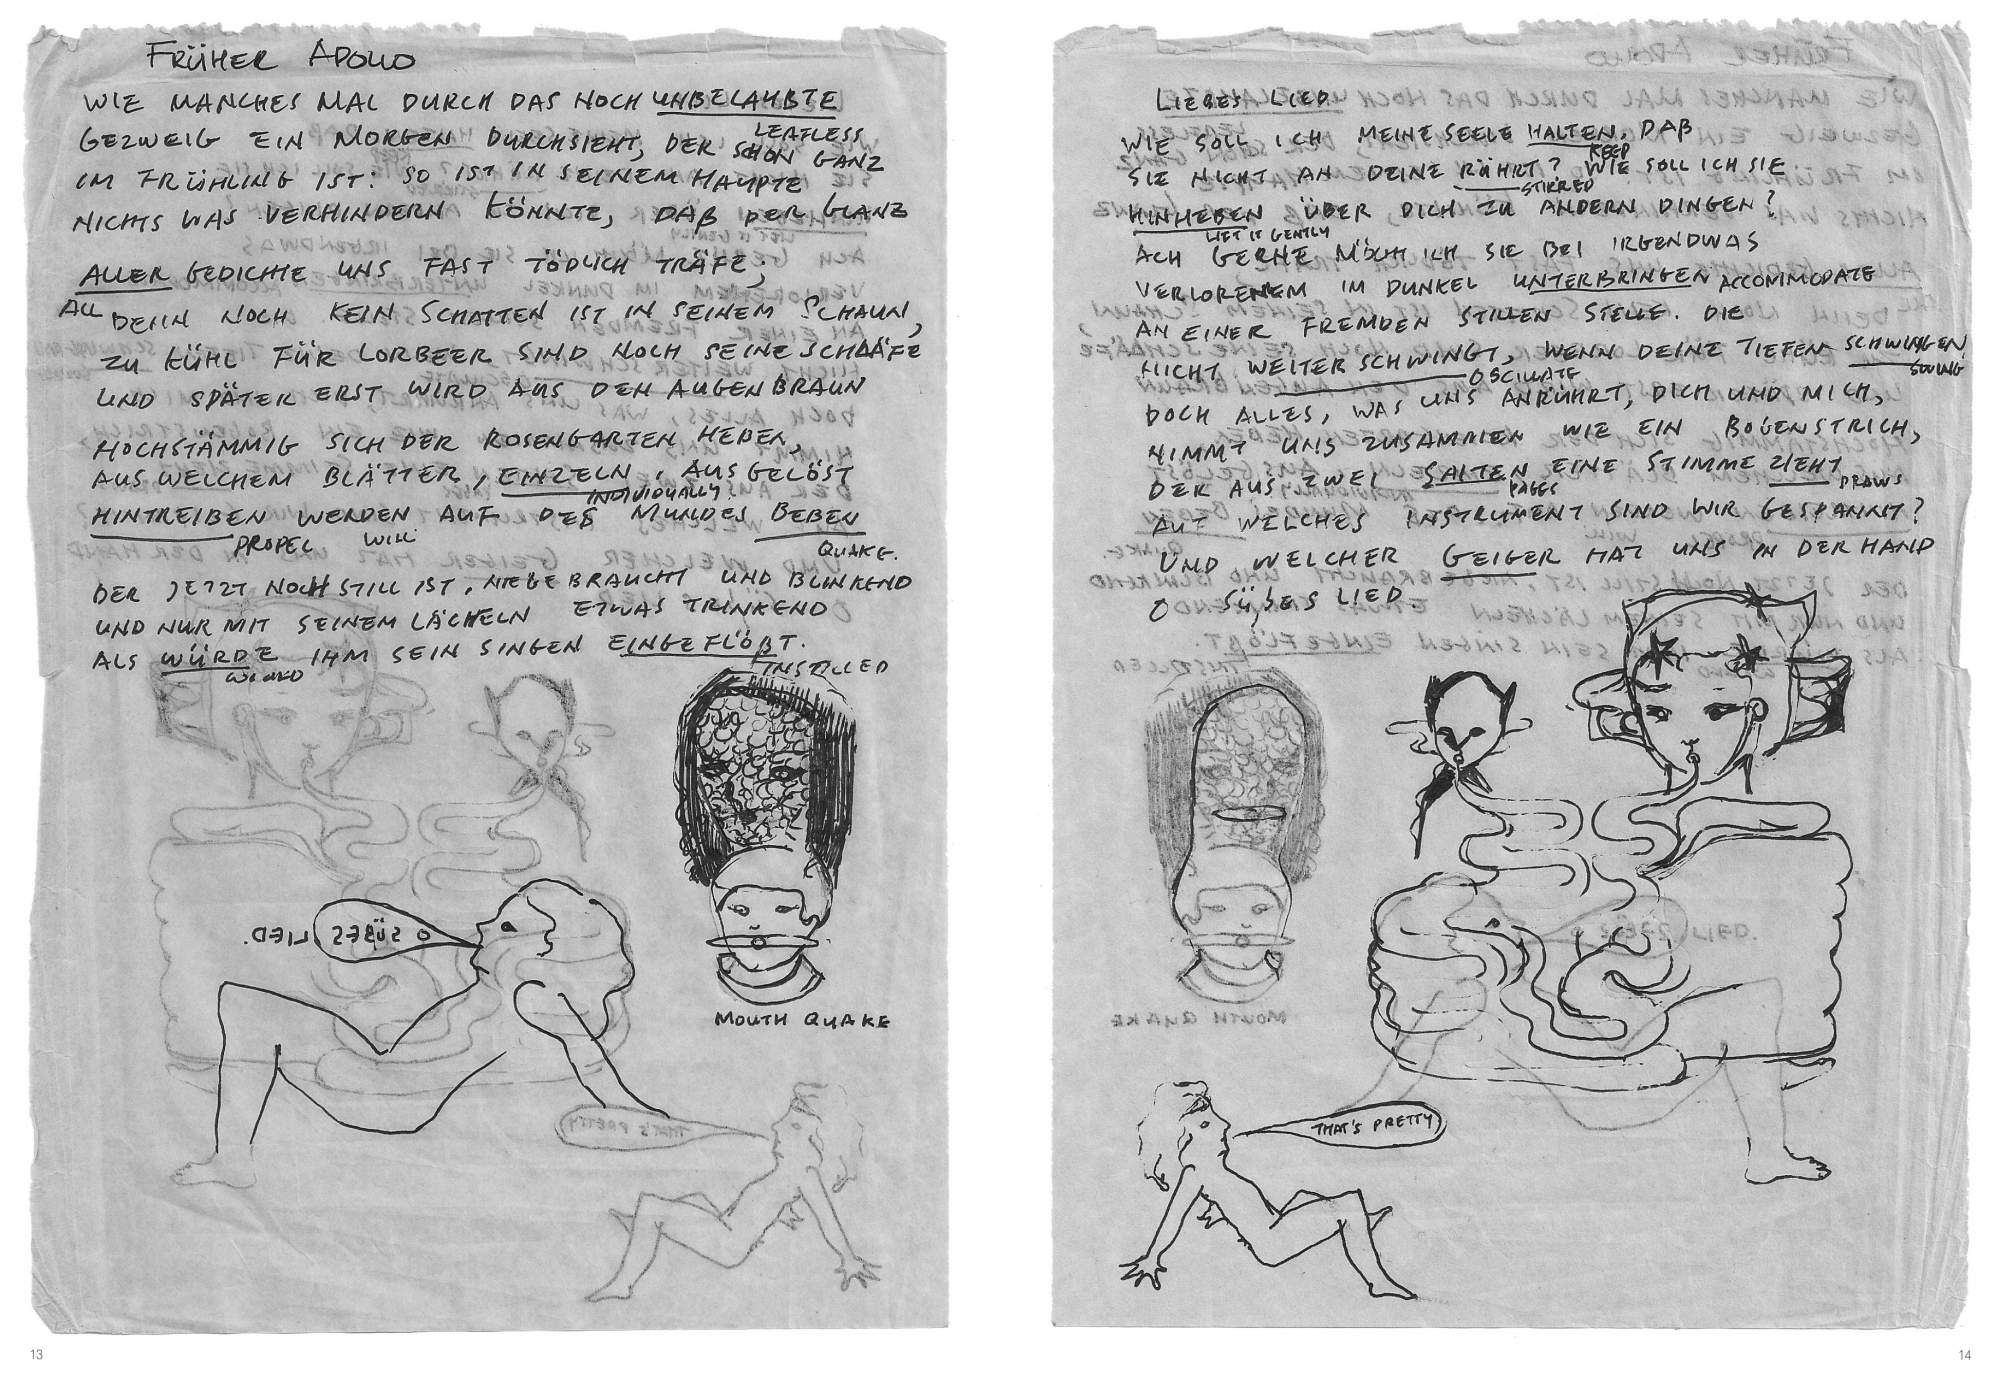 FRÜHER APOLLO
WIE MANCHES MAL DURCH DAS NOCH UNBELAUBTE
LEAFLESS
GEZWEIG EIN MORGEN DURCHSIEHT, DER SCHON GANZ
IM FRÜHLING IST: SO IST IN SEINEM HAUPTE
NICHTS WAS VERHINDERN KÖNNTE, DAß DER GLANZ
ALLER GEDICHTE UNS FAST TÖDLICH TRÄFE;
ALL
DENN NOCH KEIN SCHATTEN IST IN SEINEM SCHAUN,
ZU KÜHL FÜR LORBEER SIND NOCH SEINE SCHLÄFE
UND SPÄTER ERST WIRD AUS DEN AUGENBRAUN
HOCHSTÄMMIG SICH DER ROSENGARTEN HEBEN,
AUS WELCHEM BLÄTTER, EINZELN, AUSGELÖST
INDIVIDUALLY.
HINTREIBEN WERDEN AUF DES MUNDES BEBEN
PROPEL WILL QUAKE.
DER JETZT NOCH STILL IST, NIEGEBRAUCHT UND BLINKEND
UND NUR MIT SEINEM LÄCHELN ETWAS TRINKEND
ALS WÜRDE IHM SEIN SINGEN EINGEFLÖßT.
WOULD INSTILLED
O SÜßES LIED.
MOUTH QUAKE
THAT'S PRETTY
13
LIEBES LIED
WIE SOLL ICH MEINE SEELE HALTEN, DAß
KEEP
SIE NICHT AN DEINE RÜHRT? WIE SOLL ICH SIE
STIRRED
HINHEBEN ÜBER DICH ZU ANDERN DINGEN?
LIFT IT GENTLY
ACH GERNE MÖCHT ICH SIE BEI IRGENDWAS
VERLORENEM IM DUNKEL UNTERBRINGEN ACCOMMODATE
AN EINER FREMDEN STILLEN STELLE. DIE
NICHT WEITER SCHWINGT, WENN DEINE TIEFEN SCHWINGEN.
OSCILLATE SWING
DOCH ALLES, WAS UNS ANRÜHRT, DICH UND MICH,
NIMMT UNS ZUSAMMEN WIE EIN BOGENSTRICH,
DER AUS ZWEI SAITEN EINE STIMME ZIEHT
PAGES DRAWS
AUF WELCHES INSTRUMENT SIND WIR GESPANNT?
UND WELCHER GEIGER HAT UNS IN DER HAND
O SÜßES LIED.
O SÜßES LIED.
MOUTH QUAKE
THAT'S PRETTY
14